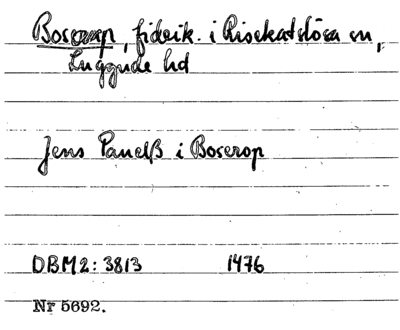 Boserup, fideik. i Risekatslösa sn,
Luggude hd
Jens Panelß i Boserop
DBM2: 3813 1476
Nr 5692.